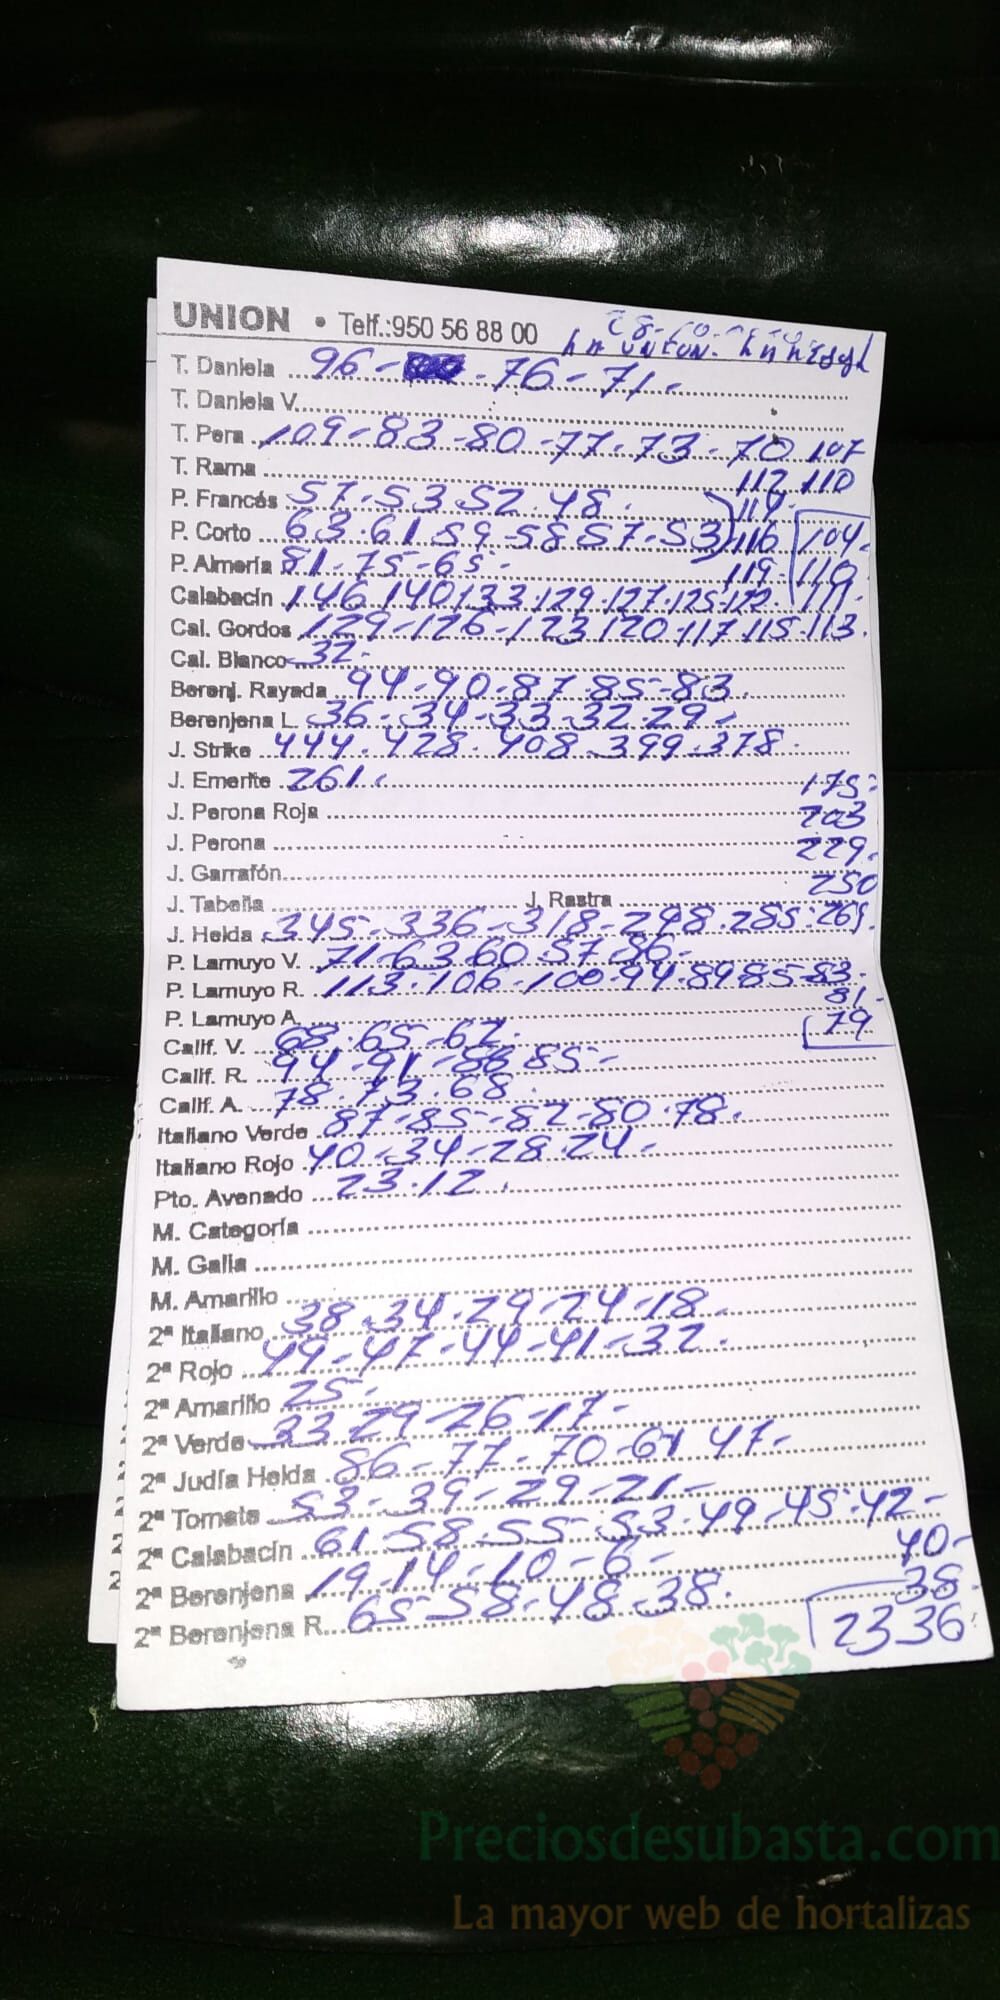 UNION • Telf.:950 56 88 00
La Union.
T. Daniela 96 - 76 - 71 -
T. Daniela V.
T. Pera 109 - 83 - 80 - 77 - 73 - 70 107
T. Rama 112 110
P. Francés 57 - 53 52 - 48 - 114 -
P. Corto 63 - 61 59 - 58 57 - 53 116 104 -
P. Almería 81 - 75 - 65 - 119 - 110
Calabacín 146 140 133 - 129 - 127 - 125 - 122 - 101 -
Cal. Gordos 129 - 126 - 123 120 - 117 115 - 113.
Cal. Blanco 32 -
Berenj. Rayada 94 - 90 - 87 85 - 83.
Berenjena L. 36 - 34 - 33 - 32 29 -
J. Strike 444 - 428 - 408 - 399 - 378 -
J. Emerite 261 - 175 -
J. Perona Roja 203
J. Perona 229 -
J. Garrafón 250
J. Tabella J. Rastra
J. Helda 345 - 336 - 318 - 298 - 285 - 269.
P. Lamuyo V. 71 - 63 - 60 - 57 - 56 -
P. Lamuyo R. 113 - 106 - 100 - 94 - 89 85 - 83 -
P. Lamuyo A. 81 -
Calif. V. 68 - 65 - 62 - 79
Calif. R. 94 - 91 - 86 85 -
Calif. A. 78 - 73 - 68 -
Italiano Verde 87 - 85 - 82 - 80 - 78.
Italiano Rojo 40 - 34 - 28 - 24 -
Pto. Avenado 23 - 12.
M. Categoría
M. Galia
M. Amarillo
2ª Italiano 38 - 34 - 29 - 24 - 18 -
2ª Rojo 49 - 47 - 44 - 41 - 32 -
2ª Amarillo 25 -
2ª Verde 33 29 - 26 - 17 -
2ª Judía Helda 86 - 77 - 70 - 61 47 -
2ª Tomate 53 - 39 - 29 - 21 -
2ª Calabacín 61 - 58 - 55 - 53 - 49 - 45 - 42 -
2ª Berenjena 19 - 14 - 10 - 6 - 40 -
2ª Berenjena R. 65 - 58 - 48 - 38 - 38 -
2336
Preciosdesubasta.com
La mayor web de hortalizas